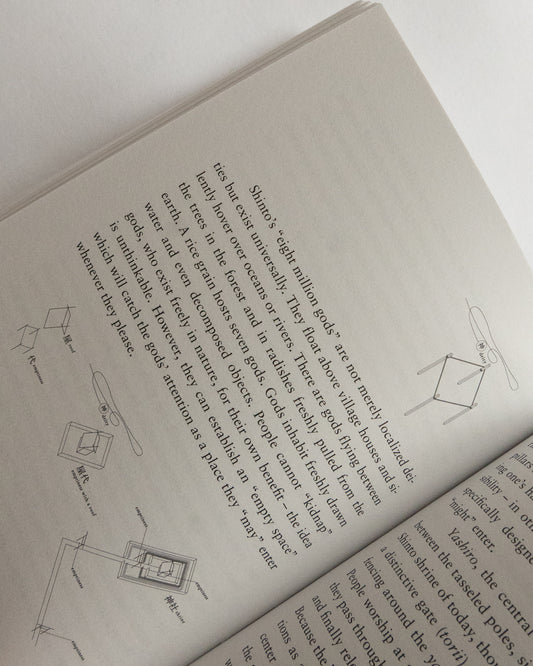 Shinto's “eight million gods” are not merely localized dei-
ties but exist universally. They float above village houses and si-
lently hover over oceans or rivers. There are gods flying between
the trees in the forest and in radishes freshly pulled from the
earth. A rice grain hosts seven gods. Gods inhabit freshly drawn
water and even decomposed objects. People cannot “kidnap”
gods, who exist freely in nature, for their own benefit – the idea
is unthinkable. However, they can establish an “empty space”
which will catch the gods' attention as a place they “may” enter
whenever they please.
神 deity
屋 roof
代 emptiness
神 deity
屋代
emptiness with a roof
emptiness
emptiness
emptiness
emptiness
神社 shrine
pillars
ing one's h
sibility – in oth
specifically designe
“might” enter.
Yashiro, the central
between the tasseled poles, si
Shinto shrine of today, thou
a distinctive gate (torii)
fencing around the y
People worship at
they pass through
and finally rele
Because the
tions as
center
the